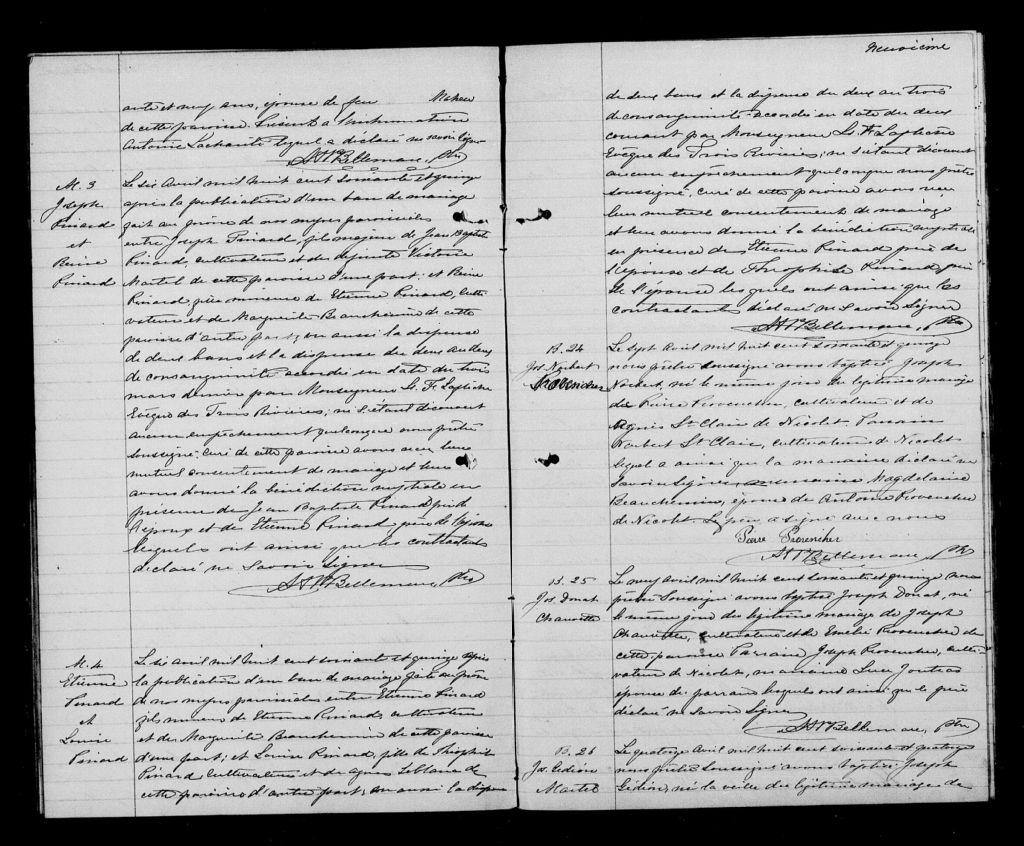 ante et neuf ans, épouse de feu Maheu
de cette paroisse. Présent à l'inhumation
Antoine Lachaute lequel a déclaré ne savoir signer
A. H. Bellemare, Ptre
M. 3
Joseph
Pinard
et
Reine
Pinard
Le six Avril mil huit cent soixante et quinze
après la publication d'un ban de mariage
fait au prône de nos messes paroissiales
entre Joseph Pinard, fils majeur de Jean Baptiste
Pinard, cultivateur et de défunte Victoire
Martel de cette paroisse d'une part; et Reine
Pinard fille mineure de Etienne Pinard, culti-
vateur et de Marguerite Beauchemin de cette
paroisse d'autre part; vu aussi la dispense
de deux bans et la dispense du deux au deux
de consanguinité accordée en date du trois
mars dernier par Monseigneur L. F. Laflèche
Evêque des Trois Rivières; ne s'étant découvert
aucun empêchement quelconque nous prêtre
soussigné, Curé de cette paroisse avons reçu leur
mutuel consentement de mariage et leur
avons donné la bénédiction nuptiale en
présence de Jean Baptiste Pinard père de
l'époux et de Etienne Pinard père de l'épouse
lesquels ont ainsi que les contractants
déclaré ne savoir signer
A. H. Bellemare, Ptre
M. 4
Etienne
Pinard
et
Louise
Pinard
Le six avril mil huit cent soixante et quinze après
la publication d'un ban de mariage faite au prône
de nos messes paroissiales entre Etienne Pinard
fils mineur de Etienne Pinard, cultivateur
et de Marguerite Beauchemin de cette paroisse
d'une part; et Louise Pinard, fille de Théophile
Pinard Cultivateur et de Agnès Leblanc de
cette paroisse d'autre part; vu aussi la dispense
Neuvième
de deux bans et la dispense du deux au trois
de consanguinité accordée en date du deux
courant par Monseigneur L. F. Laflèche
Evêque des Trois Rivières; ne s'étant découvert
aucun empêchement quelconque nous prêtre
soussigné, Curé de cette paroisse avons reçu
leur mutuel consentement de mariage
et leur avons donné la bénédiction nuptiale
en présence de Etienne Pinard père de
l'époux et de Théophile Pinard, père
de l'épouse lesquels ont ainsi que les
contractants déclaré ne savoir signer
A. H. Bellemare, Ptre
B. 24
Jos Norbert
Provencher
Le sept Avril mil huit cent soixante et quinze
nous prêtre soussigné avons baptisé Joseph
Norbert, né le même jour du légitime mariage
de Pierre Provencher, cultivateur et de
Agnès St Claire de Nicolet. Parrain
Norbert St Claire, cultivateur de Nicolet
lequel a ainsi que la marraine déclaré ne
savoir signer, marraine Magdelaine
Beauchemin, épouse de Antoine Provencher
de Nicolet. Le père a signé avec nous
Pierre Provencher
A. H. Bellemare, Ptre
B. 25
Jos. Donat
Chaurette
Le neuf Avril mil huit cent soixante et quinze nous
prêtre soussigné avons baptisé Joseph Donat, né
le même jour du légitime mariage de Joseph
Chaurette, cultivateur et de Emélie Provencher de
cette paroisse Parrain Joseph Provencher, culti-
vateur de Nicolet, marraine Luce Joutras
épouse du parrain lesquels ont ainsi que le père
déclaré ne savoir signer
A. H. Bellemare, Ptre
B. 26
Jos. Gédéon
Martel
Le quatorze Avril mil huit cent soixante et quatorze
nous prêtre soussigné avons baptisé Joseph
Gédéon, né la veille du légitime mariage de